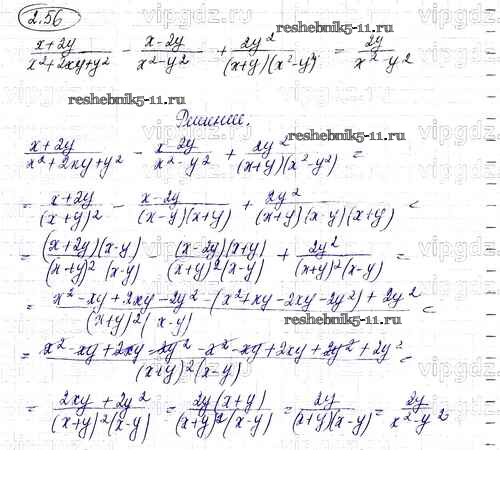 2.56
(x+2y)/(x²+2xy+y²) - (x-2y)/(x²-y²) + 2y²/((x+y)(x²-y²)) = 2y/(x²-y²)
reshebnik5-11.ru
reshebnik5-11.ru
Решение.
reshebnik5-11.ru
(x+2y)/(x²+2xy+y²) - (x-2y)/(x²-y²) + 2y²/((x+y)(x²-y²)) =
= (x+2y)/(x+y)² - (x-2y)/((x-y)(x+y)) + 2y²/((x+y)(x-y)(x+y)) =
= (x+2y)(x-y)/((x+y)²(x-y)) - (x-2y)(x+y)/((x+y)²(x-y)) + 2y²/((x+y)²(x-y)) =
= (x²-xy+2xy-2y²-(x²+xy-2xy-2y²)+2y²)/((x+y)²(x-y)) =
reshebnik5-11.ru
= (x²-xy+2xy-2y²-x²-xy+2xy+2y²+2y²)/((x+y)²(x-y)) =
= (2xy+2y²)/((x+y)²(x-y)) = 2y(x+y)/((x+y)²(x-y)) = 2y/((x+y)(x-y)) = 2y/(x²-y²)
reshebnik5-11.ru